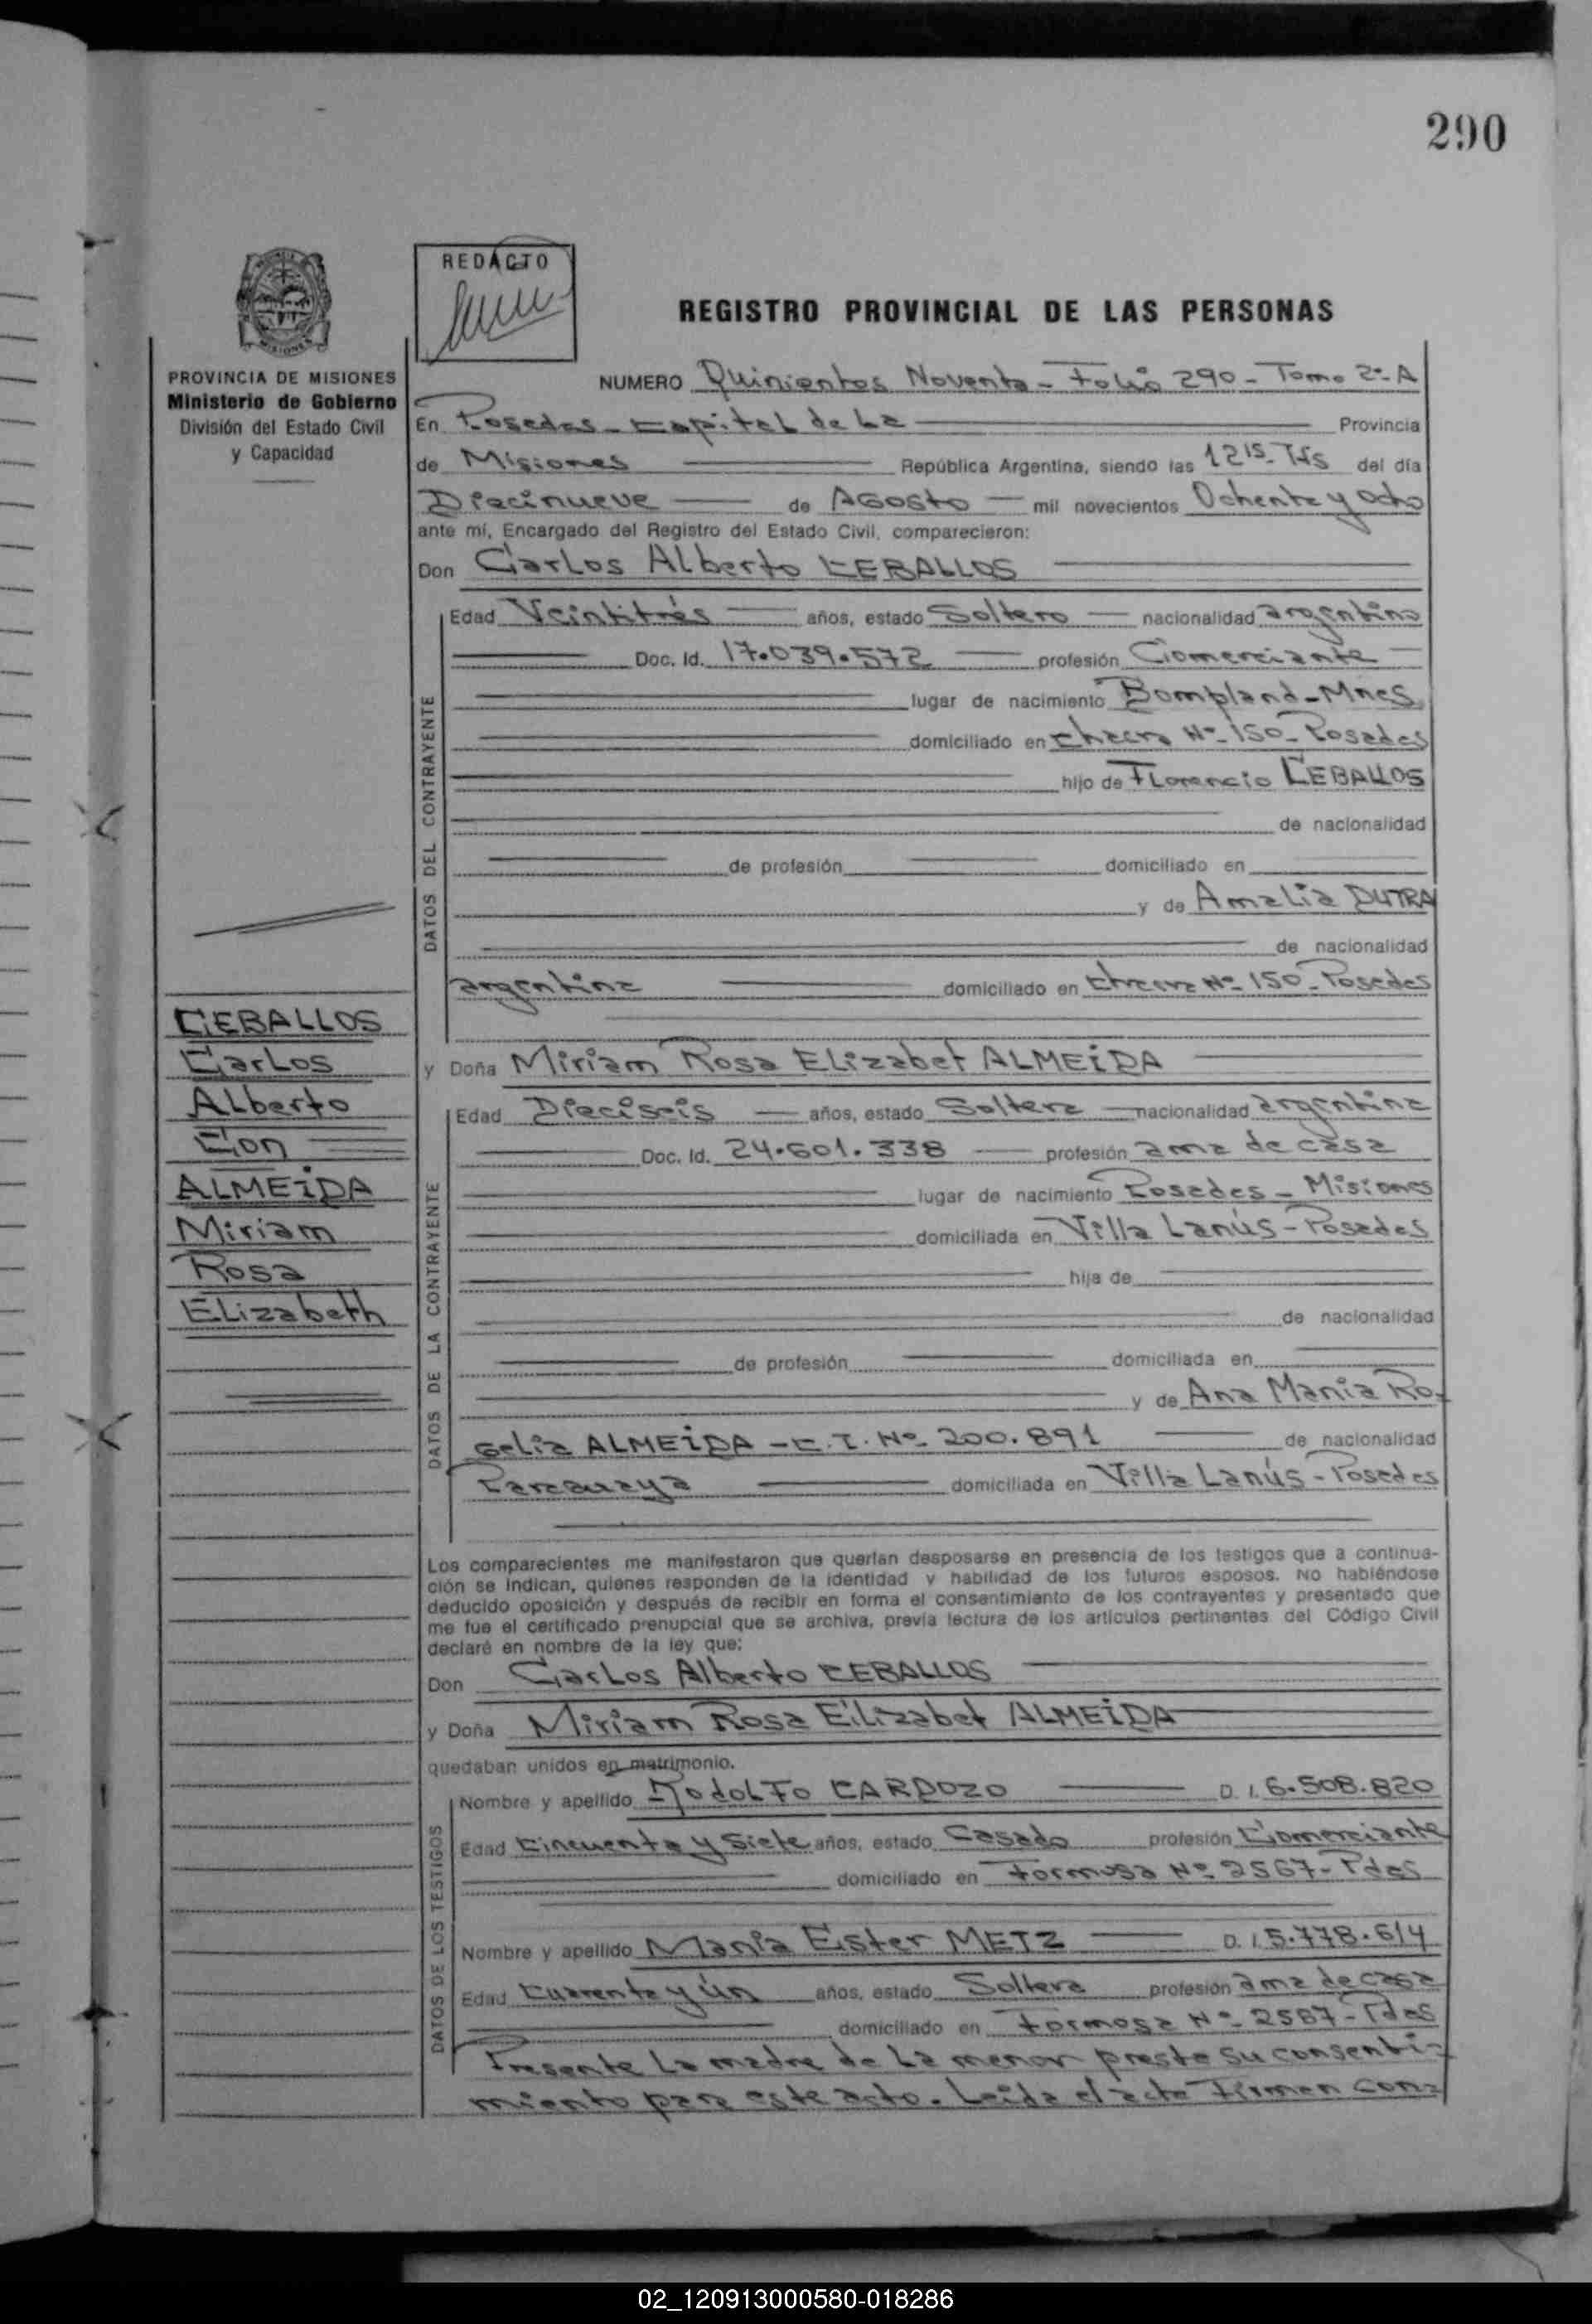 290
REDACTO
REGISTRO PROVINCIAL DE LAS PERSONAS
MISIONES
PROVINCIA DE MISIONES
Ministerio de Gobierno
División del Estado Civil
y Capacidad
NUMERO Quinientos Noventa - Folio 290 - Tomo 2º- A
En Posadas - Capital de La Provincia
de Misiones República Argentina, siendo las 12 15 - Hs del día
Diecinueve de Agosto mil novecientos Ochenta y ocho
ante mí, Encargado del Registro del Estado Civil, comparecieron:
Don Carlos Alberto CEBALLOS
DATOS DEL CONTRAYENTE
Edad Veintitrés años, estado Soltero nacionalidad argentino
Doc. Id. 17.039.572 profesión Comerciante
lugar de nacimiento Bompland - Mnes
domiciliado en Chacra Nº 150 - Posadas
hijo de Florencio CEBALLOS
de nacionalidad
de profesión domiciliado en
y de Amalia DUTRA
de nacionalidad
argentina domiciliado en Chacra Nº 150 - Posadas
CEBALLOS
Carlos
Alberto
Con
ALMEIDA
Miriam
Rosa
Elizabeth
y Doña Miriam Rosa Elizabet ALMEIDA
DATOS DE LA CONTRAYENTE
Edad Dieciseis años, estado Soltera nacionalidad argentina
Doc. Id. 24.601.338 profesión ama de casa
lugar de nacimiento Posadas - Misiones
domiciliada en Villa Lanús - Posadas
hija de
de nacionalidad
de profesión domiciliada en
y de Ana María Ro-
gelia ALMEIDA - C. I. Nº 200.891 de nacionalidad
Paraguaya domiciliada en Villa Lanús - Posadas
Los comparecientes me manifestaron que querían desposarse en presencia de los testigos que a continua-
ción se indican, quienes responden de la identidad y habilidad de los futuros esposos. No habiéndose
deducido oposición y después de recibir en forma el consentimiento de los contrayentes y presentado que
me fue el certificado prenupcial que se archiva, previa lectura de los artículos pertinentes del Código Civil
declaré en nombre de la ley que:
Don Carlos Alberto CEBALLOS
y Doña Miriam Rosa Elizabet ALMEIDA
quedaban unidos en matrimonio.
DATOS DE LOS TESTIGOS
Nombre y apellido Rodolfo CARDOZO D. I. 6.508.820
Edad Cincuenta y Siete años, estado Casado profesión Comerciante
domiciliado en Formosa Nº 2567 - Pdas
Nombre y apellido María Ester METZ D. I. 5.778.614
Edad Cuarenta y ún años, estado Soltera profesión ama de casa
domiciliado en Formosa Nº 2587 - Pdas
Presente La madre de La menor presta su consenti-
miento para este acto. Leída el acta Firman con-
02_120913000580-018286